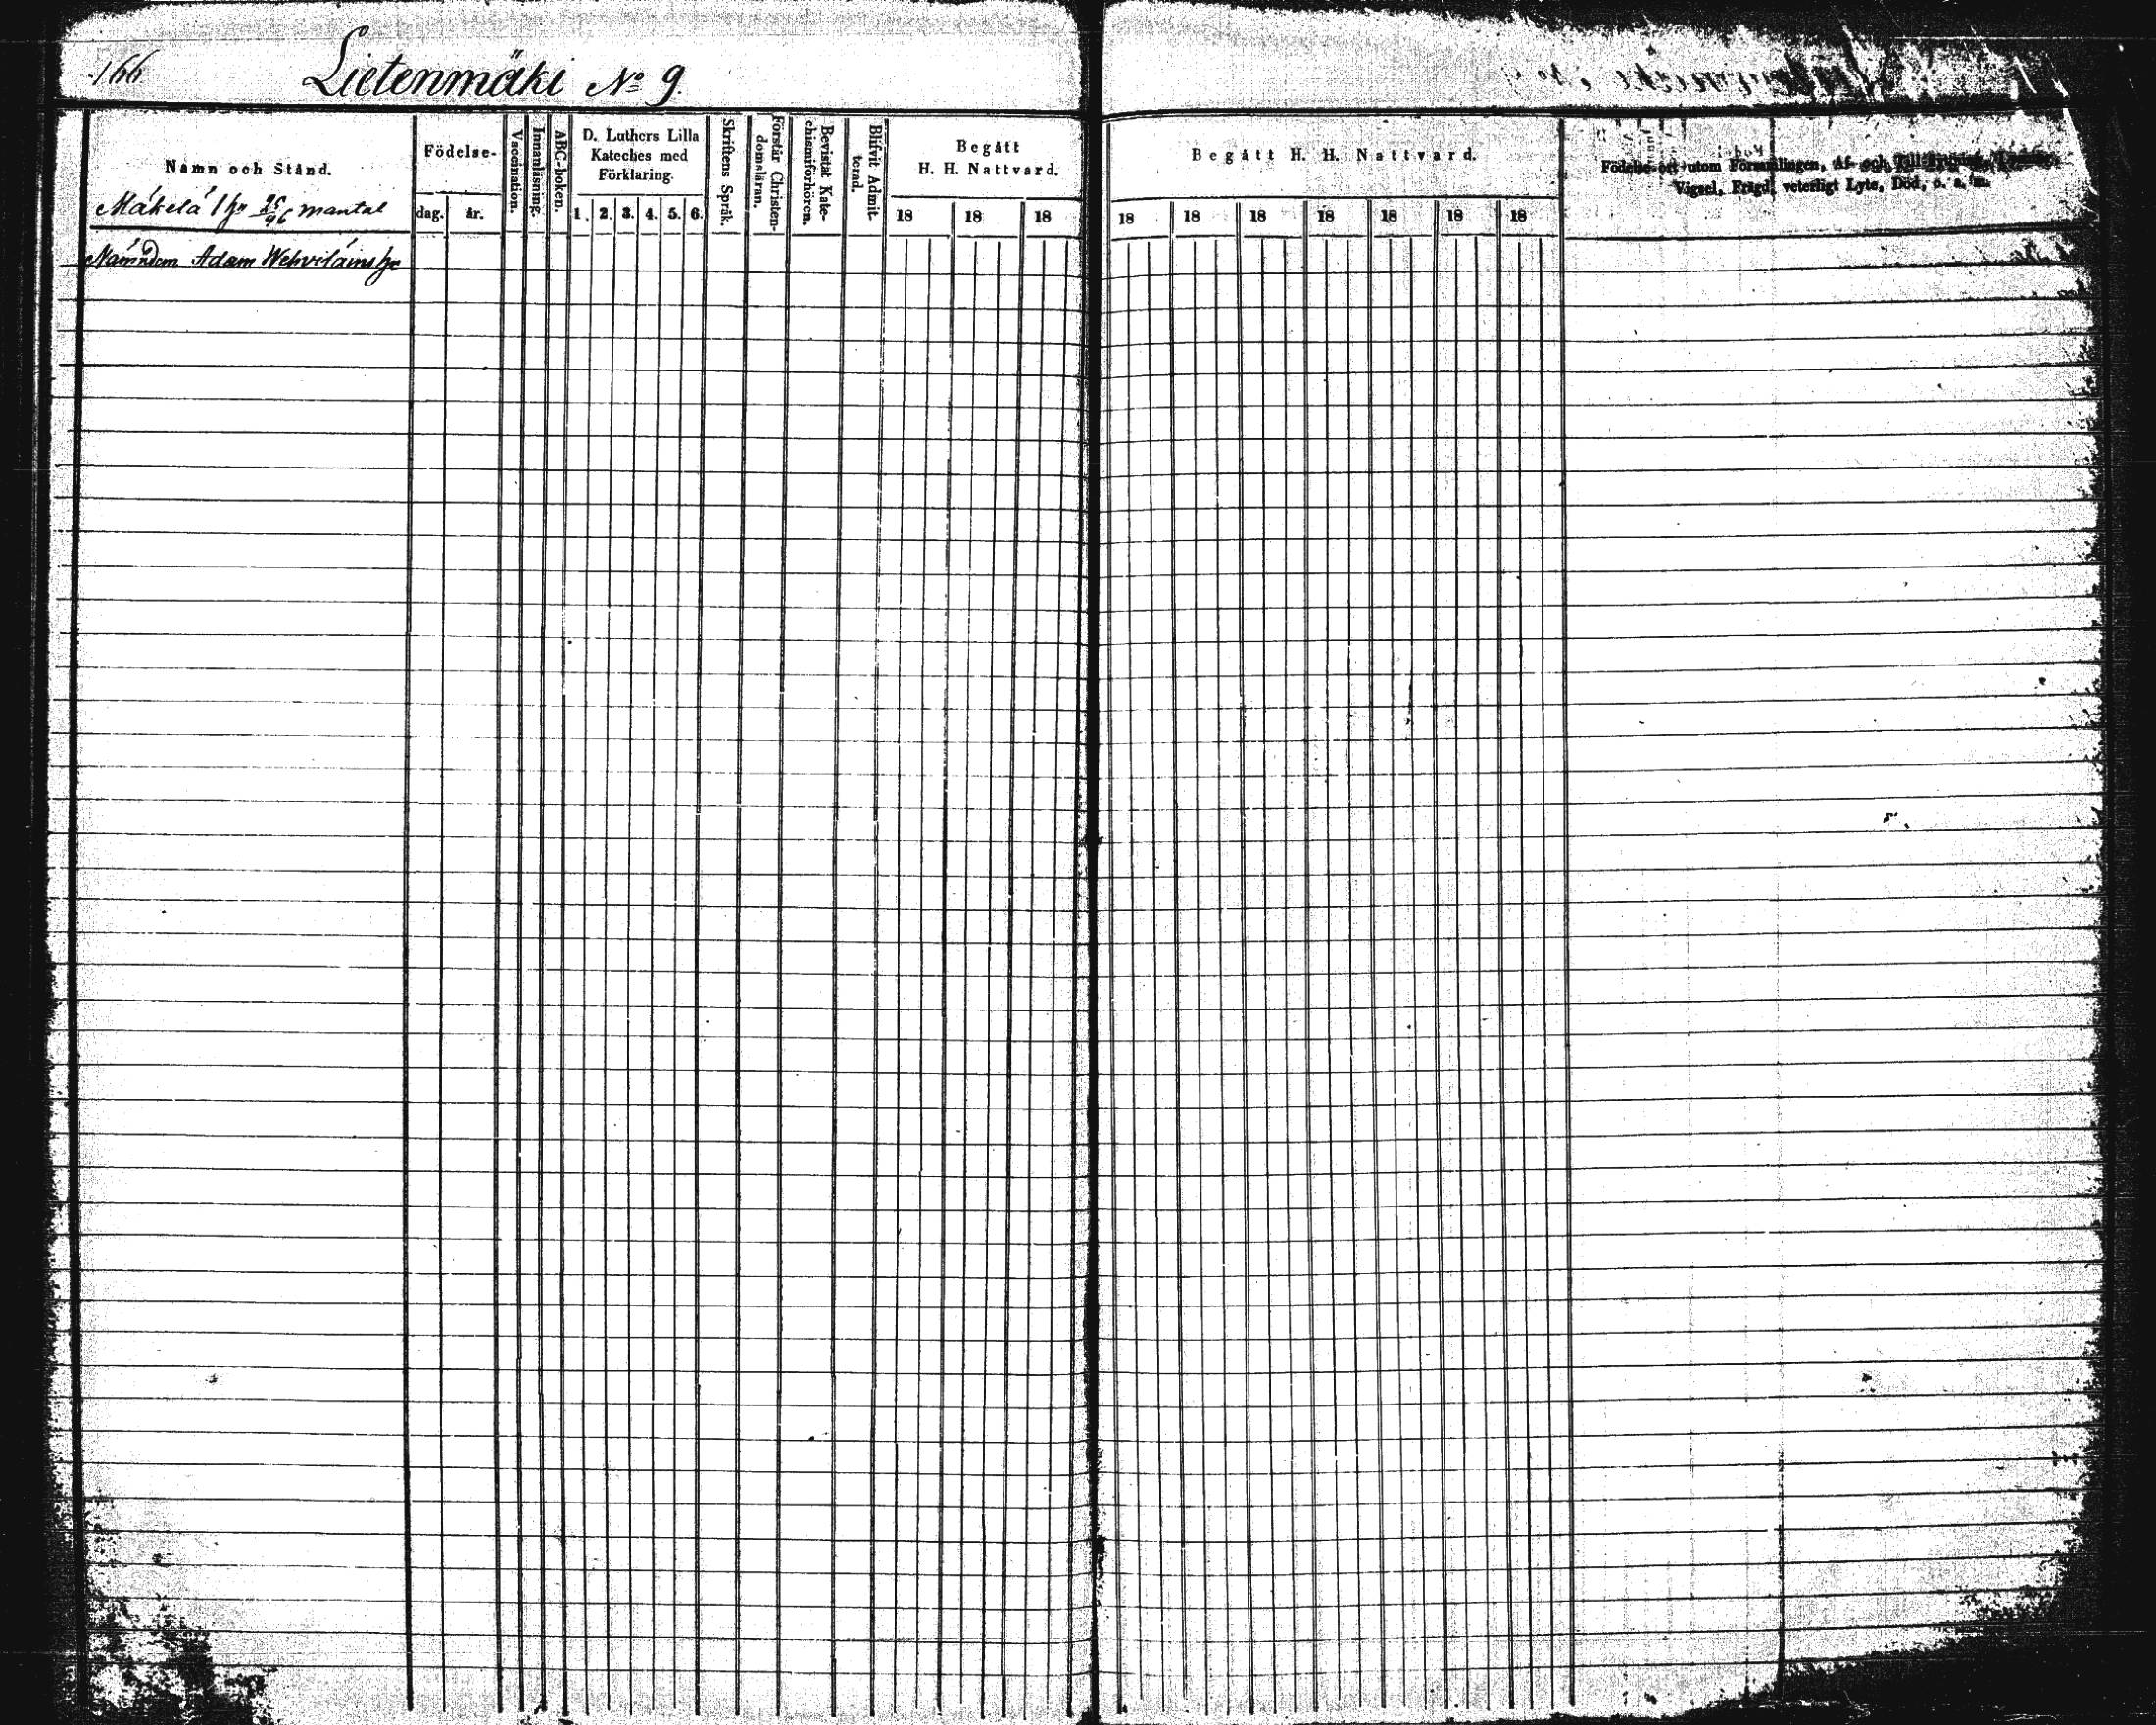 166
Lietenmäki No 9.
Namn och Stånd.
Mäkelä 1 hn 25/96 mantal
Födelse-
dag.
år.
Vaccination.
Innanläsning.
ABC-boken.
D. Luthers Lilla
Kateches med
Förklaring.
1. 2. 3. 4. 5. 6.
Skriftens Språk.
Förstår Christen-
domsläran.
Bevistat Kate-
chismiförhören.
Blifvit Admit-
terad.
Begått
H. H. Nattvard.
18 18 18
Begått H. H. Nattvard.
18 18 18 18 18 18 18
Födelse-ort utom Församlingen, Af- och
Vigsel, Frägd, veterligt Lyte, Död, o. s. m.
Nämndem Adam Wehviläins